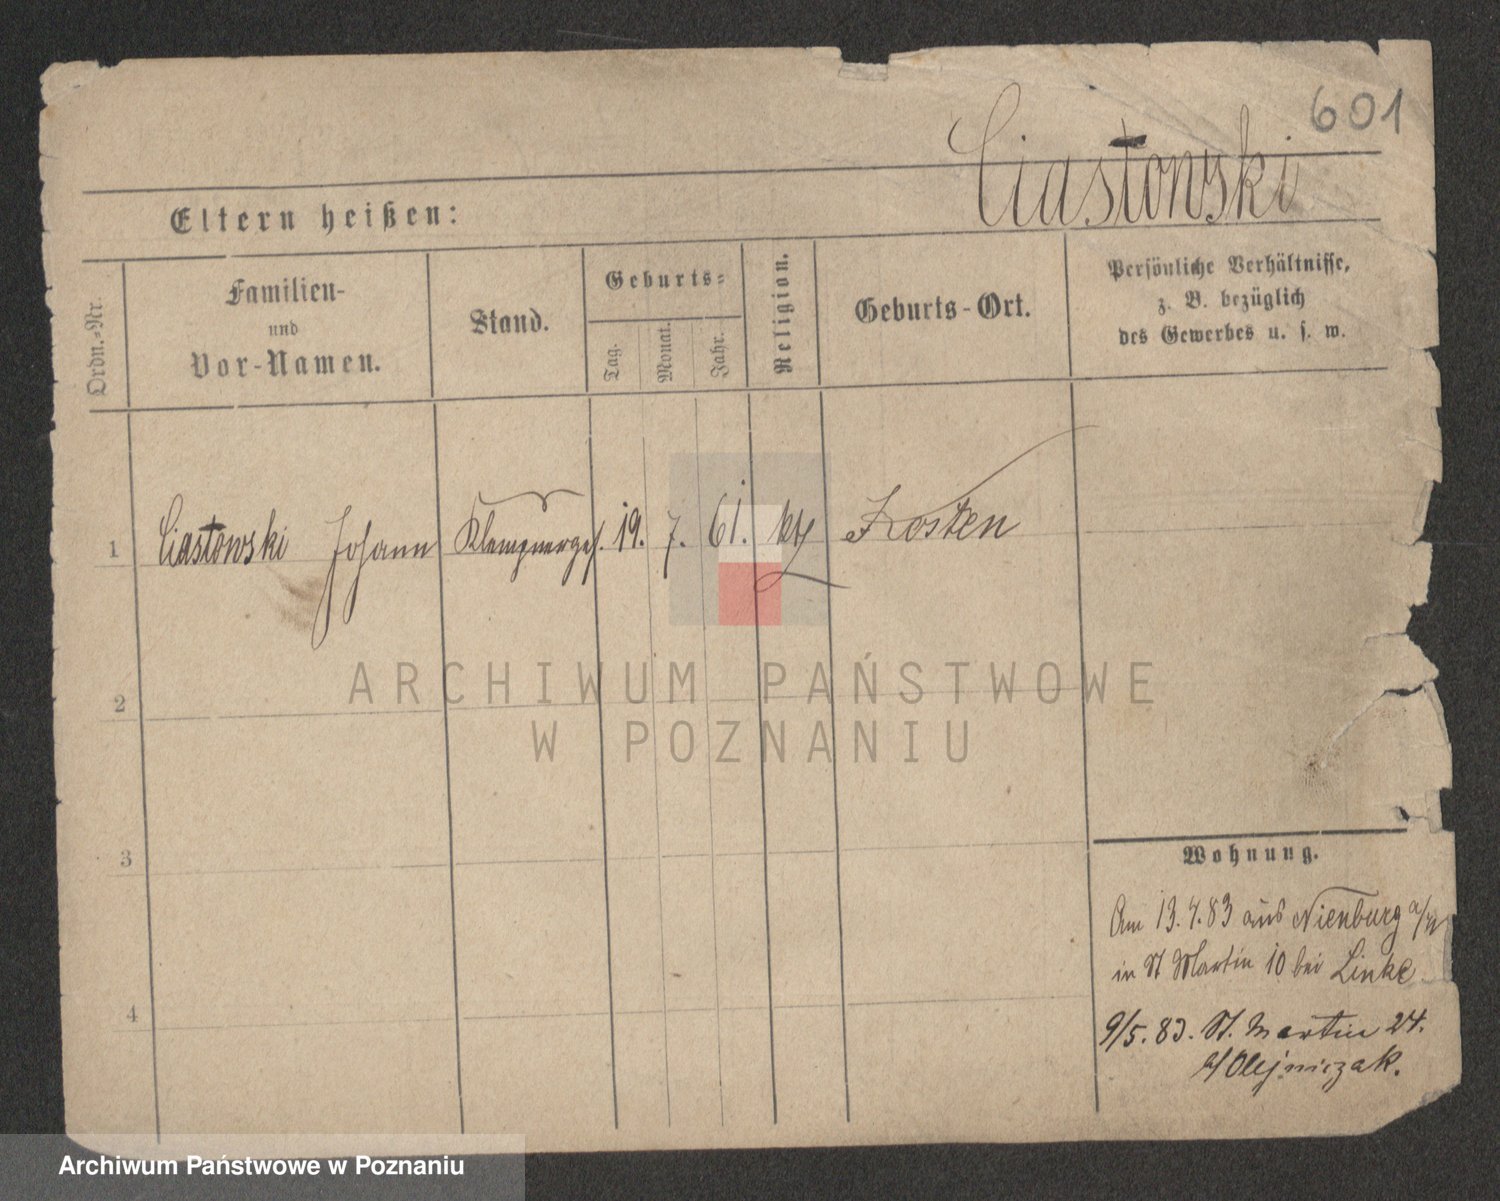 601
Ciastowski
Eltern heißen:
Ordn.-Nr.
Familien-
und
Vor-Namen.
Stand.
Geburts-
Tag.
Monat.
Jahr.
Religion.
Geburts-Ort.
Persönliche Verhältnisse,
z. B. bezüglich
des Gewerbes u. s. w.
1 Ciastowski Johann Klempnerges. 19. 7. 61. kth Kosten
2
3
4
Wohnung.
Am 13.4.83 aus Nienburg
in St Martin 10 bei Linke
9/5.83. St. Martin 24.
b/Olejniczak.
ARCHIWUM PAŃSTWOWE
W POZNANIU
Archiwum Państwowe w Poznaniu